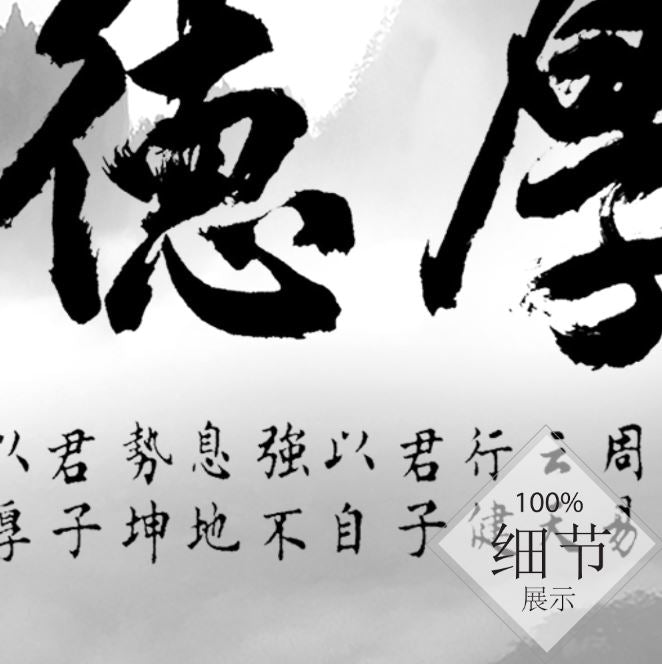 厚德
周易
云天
行健
君子
以自
強不
息地
勢坤
君子
以厚
100%
细节
展示